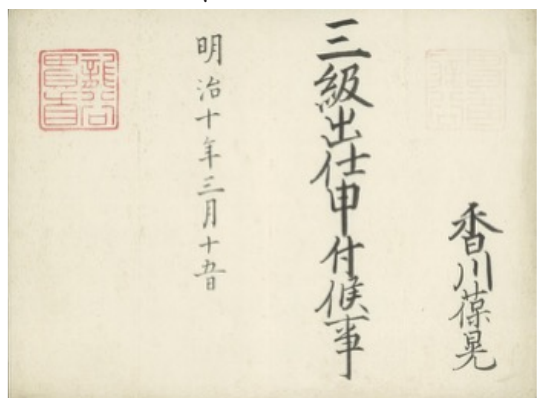 香川葆晃
三級出仕申付候事
明治十年三月十五日
龍谷
貫首